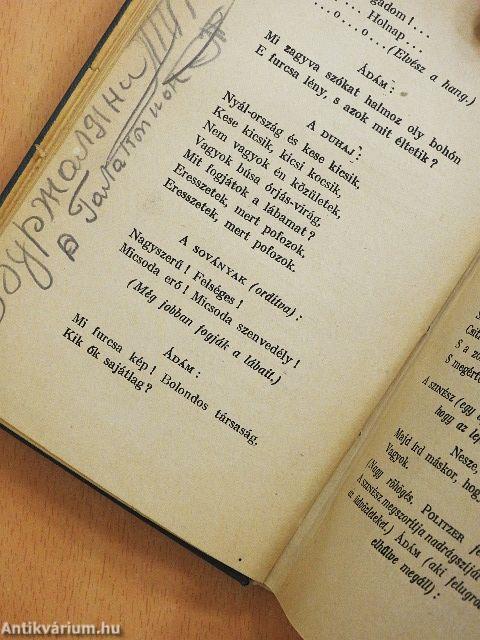 ...gadom!...
Holnap...
...o...o...o...
(Elvész a hang.)
ÁDÁM:
Mi zagyva szókat halmoz oly bohón
E furcsa lény, s azok mit éltetik?
A DUHAJ:
Nyál-ország és kese kicsik,
Kese kicsik, kicsi kocsik,
Nem vagyok én közületek,
Vagyok búsa órjás-virág,
Mit fogjátok a lábamat?
Eresszetek, mert pofozok,
Eresszetek, mert pofozok.
A SOVÁNYAK (ordítva):
Nagyszerű! Felséges!
Micsoda erő! Micsoda szenvedély!
(Még jobban fogják a lábait.)
ÁDÁM:
Mi furcsa kép! Bolondos társaság,
Kik ők sajátlag?
S a
S megért
A SZINÉSZ (egy
hogy az
Nesze,
Majd írd máskor, hog
Vagyok.
(Nagy röhögés. POLITZER
A SZINÉSZ megszorítja nadrágszíját
az üdvözleteket.) ÁDÁM (aki felugro
elhűlve megáll):
Antikvárium.hu